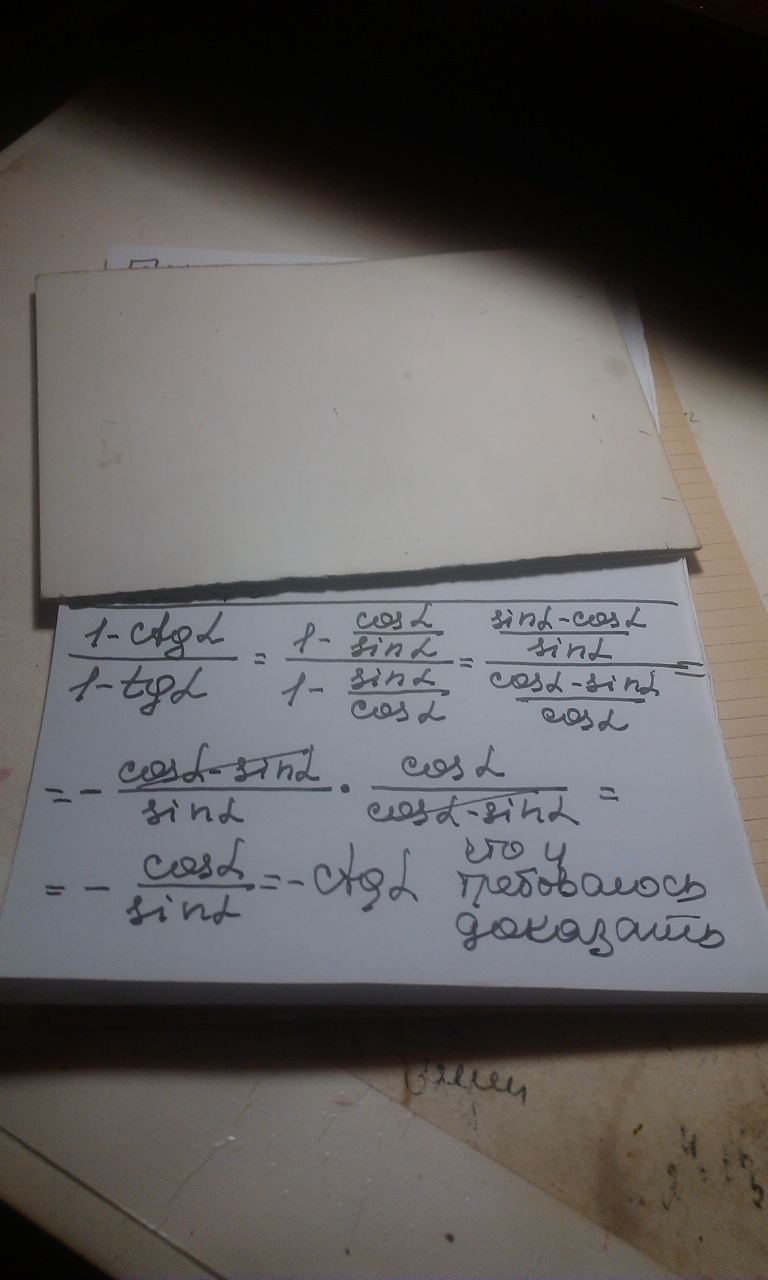 (1-ctgα)/(1-tgα) = (1-cosα/sinα)/(1-sinα/cosα) = ((sinα-cosα)/sinα)/((cosα-sinα)/cosα) =
= - (cosα-sinα)/sinα · cosα/(cosα-sinα) =
= - cosα/sinα = -ctgα что и
требовалось
доказать